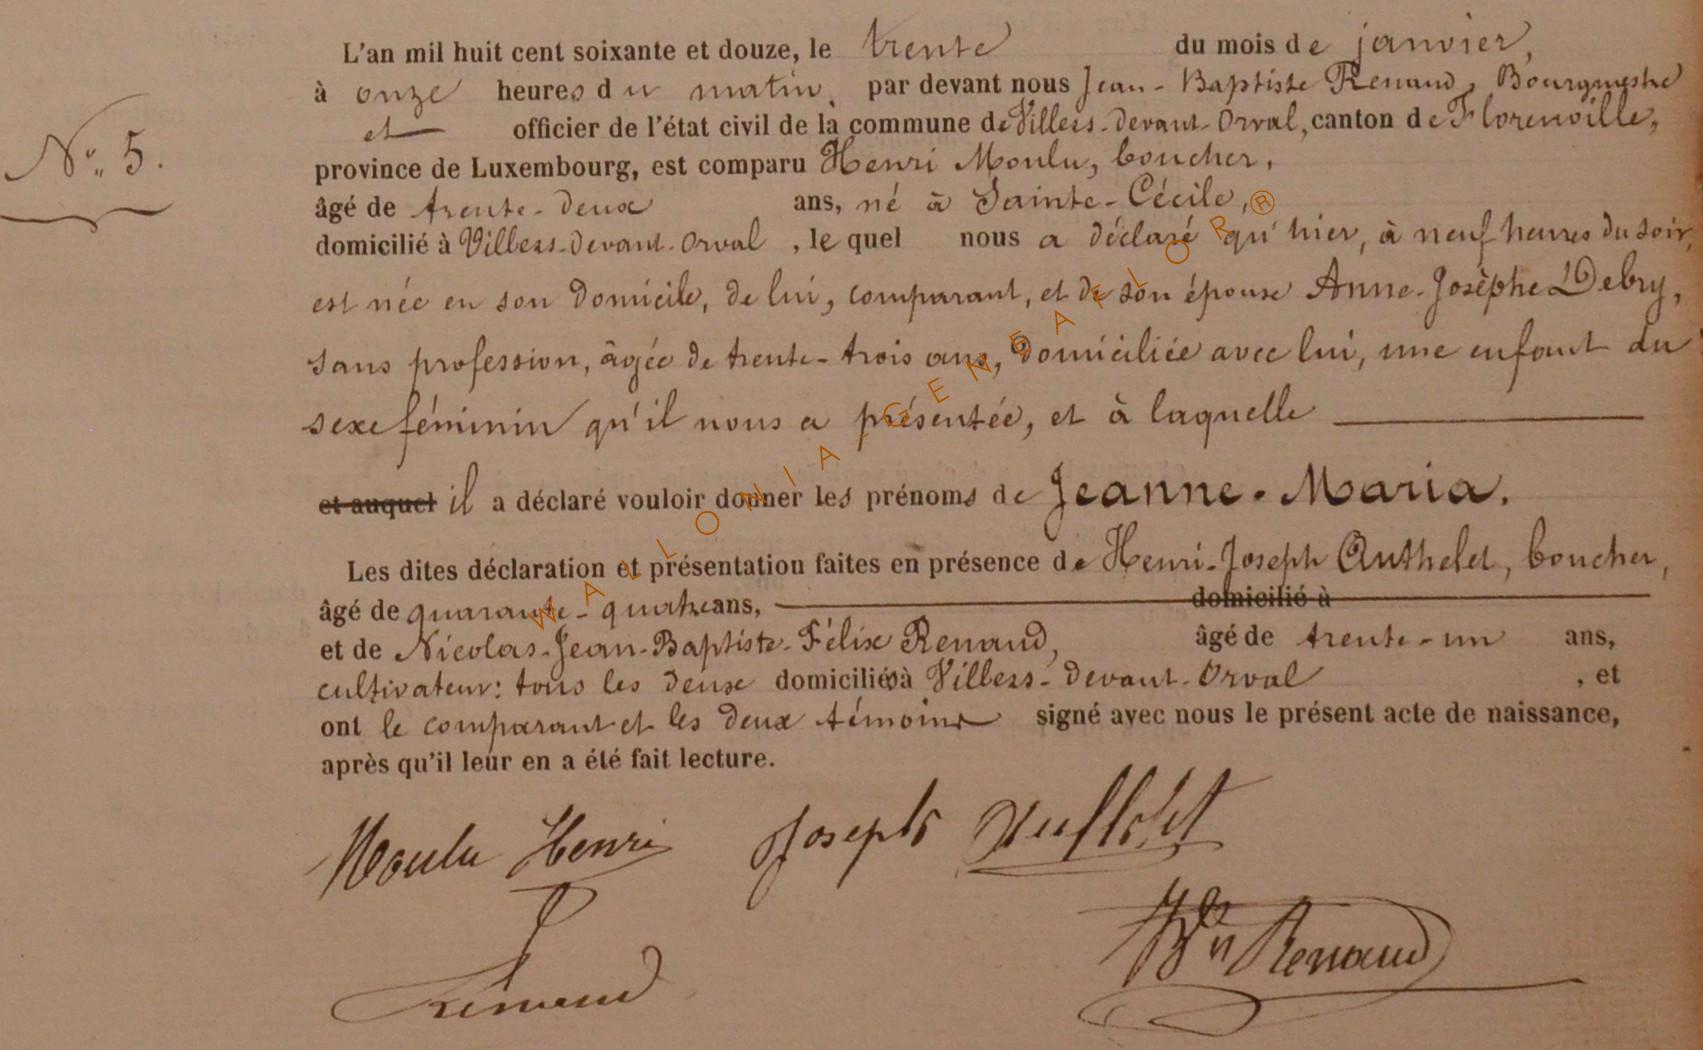 L'an mil huit cent soixante et douze, le trente du mois de janvier,
à onze heures du matin, par devant nous Jean-Baptiste Renaud, Bourgmestre
et officier de l'état civil de la commune de Villers-devant-Orval, canton de Florenville,
N° 5.
province de Luxembourg, est comparu Henri Moulu, boucher,
âgé de trente-deux ans, né à Sainte-Cécile,
domicilié à Villers-devant-Orval, lequel nous a déclaré qu'hier, à neuf heures du soir,
est née en son domicile, de lui, comparant, et de son épouse Anne-Josèphe Debry,
sans profession, âgée de trente-trois ans, domiciliée avec lui, une enfant du
sexe féminin qu'il nous a présentée, et à laquelle
et auquel il a déclaré vouloir donner les prénoms de Jeanne-Maria.
Les dites déclaration et présentation faites en présence de Henri-Joseph Authelet, boucher,
âgé de quarante-quatre ans, domicilié à
et de Nicolas-Jean-Baptiste-Félix Renaud, âgé de trente-un ans,
cultivateur: tous les deux domiciliés à Villers-devant-Orval, et
ont le comparant et les deux témoins signé avec nous le présent acte de naissance,
après qu'il leur en a été fait lecture.
Moulu Henri Joseph
Renaud Renaud
WALLONIA-GENEAFLOR®